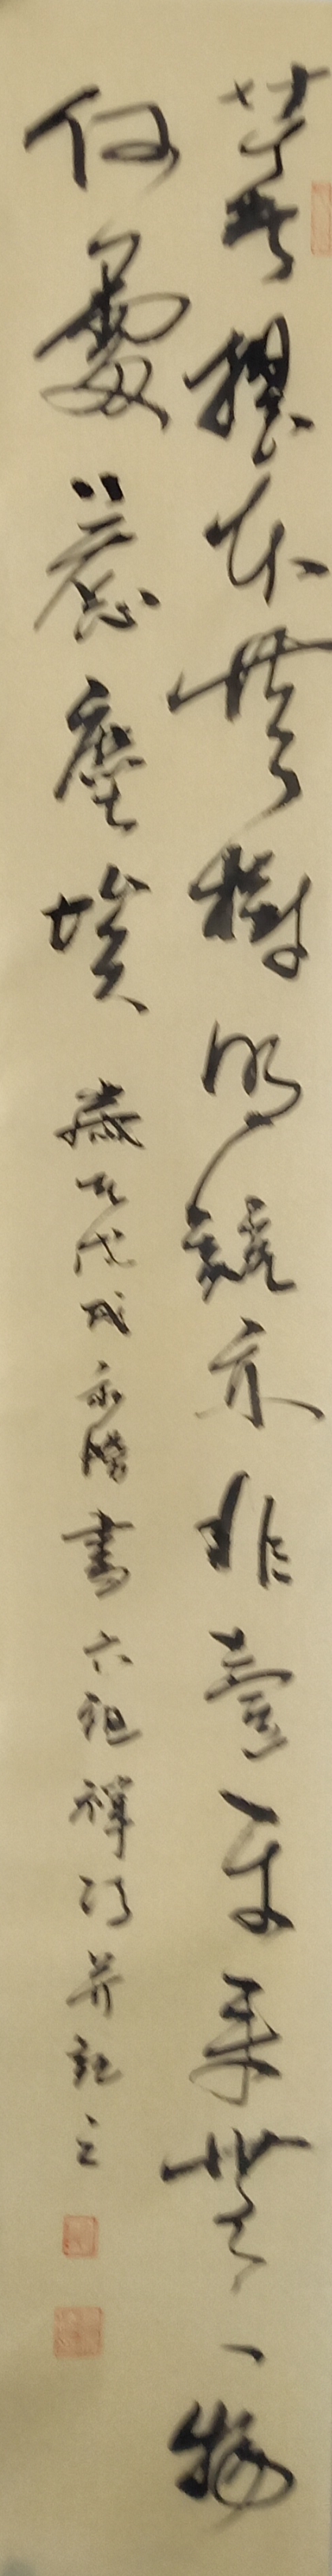 菩提本無樹明鏡亦非臺本來無一物
何處惹塵埃 歲在戊戌永勝書六祖禪詩并記之